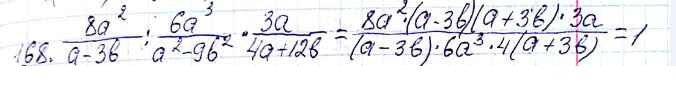 168. \frac{8a^2}{a-3b} : \frac{6a^3}{a^2-9b^2} \cdot \frac{3a}{4a+12b} = \frac{8a^2 \cdot (a-3b)(a+3b) \cdot 3a}{(a-3b) \cdot 6a^3 \cdot 4(a+3b)} = 1